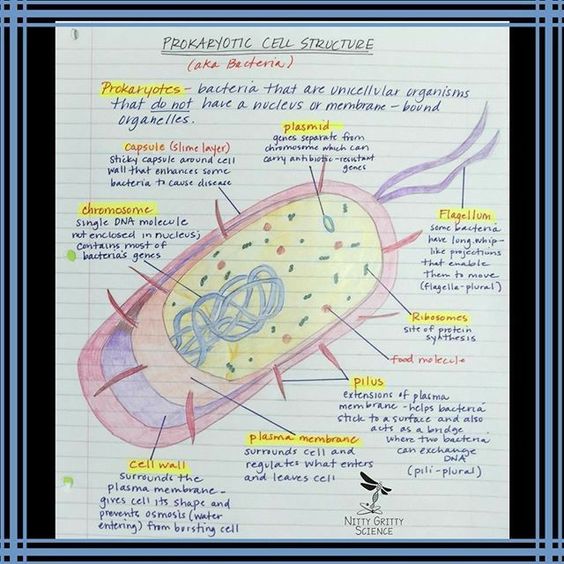 PROKARYOTIC CELL STRUCTURE
(aka Bacteria)
Prokaryotes - bacteria that are unicellular organisms
that do not have a nucleus or membrane-bound
organelles.
capsule (slime layer)
sticky capsule around cell
wall that enhances some
bacteria to cause disease
plasmid
genes separate from
chromosome which can
carry antibiotic-resistant
genes
chromosome
single DNA molecule
not enclosed in nucleus;
contains most of
bacteria's genes
Flagellum
some bacteria
have long, whip-
like projections
that enable
them to move
(flagella-plural)
Ribosomes
site of protein
synthesis
food molecule
pilus
extensions of plasma
membrane - helps bacteria
stick to a surface and also
acts as a bridge
where two bacteria
can exchange
DNA
(pili-plural)
plasma membrane
surrounds cell and
regulates what enters
and leaves cell
cell wall
surrounds the
plasma membrane-
gives cell its shape and
prevents osmosis (water
entering) from bursting cell
NITTY GRITTY
SCIENCE